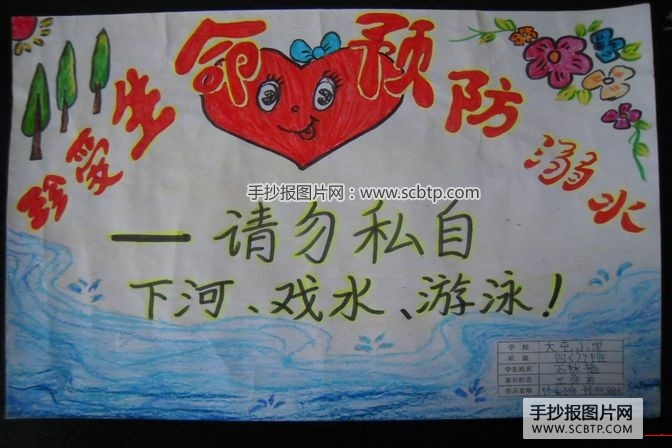 珍爱生命预防溺水
手抄报图片网：www.scbtp.com
一请勿私自
下河、戏水、游泳！
学校 大屯小学
班级 四(2)班
学生姓名
家长姓名
作品名称
手抄报图片网
WWW.SCBTP.COM